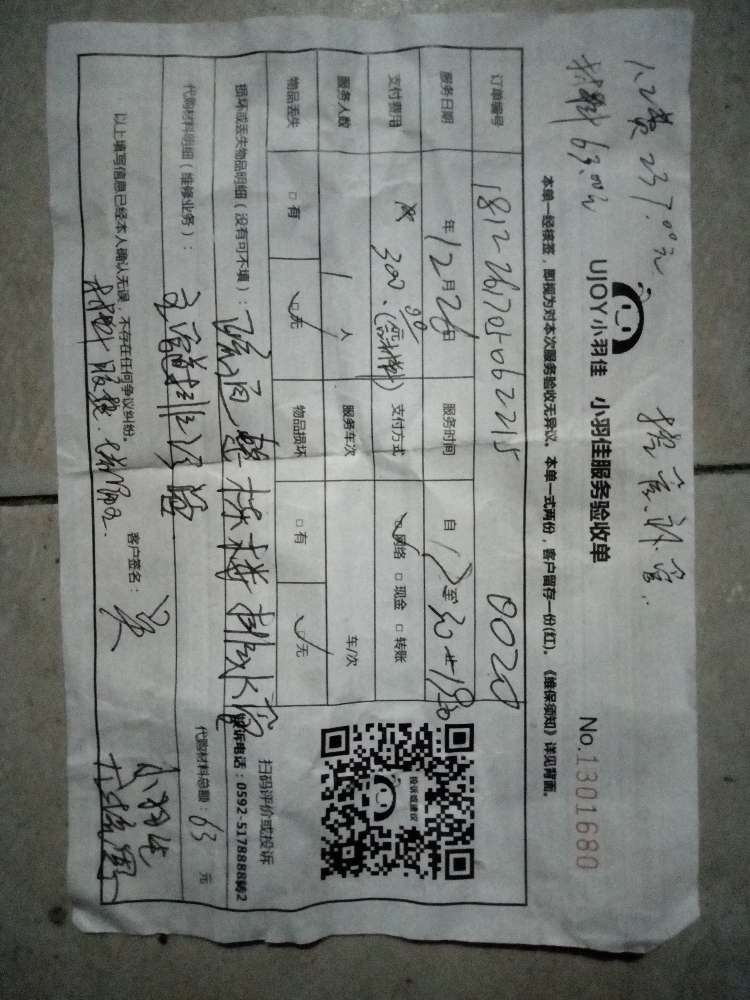 人工费 237.00元
材料 63.00元
UJOY小羽佳 小羽佳服务验收单
No.1301680
本单一经核签，即视为对本次服务验收无异议。本单一式两份，客户留存一份(红)。《维保须知》详见背面。
订单编号 181226705062215 0020
服务日期 年 12月26日 服务时间 自 17 至
支付费用 300.00 (含材料) 支付方式 网络 □ 现金 □ 转账
服务人数 1 人 服务车次 车/次
物品丢失 □ 有 无 物品损坏 □ 有 无
投诉或建议
扫码评价或投诉
投诉电话：0592-5178888转2
损坏或丢失物品明细（没有可不填）： 疏通整栋楼排水管
代购材料明细（维修业务）： 主管道排污管
代购材料总额：63 元
以上填写信息已经本人确认无误，不存在任何争议纠纷。
客户签名： 吴
小羽佳